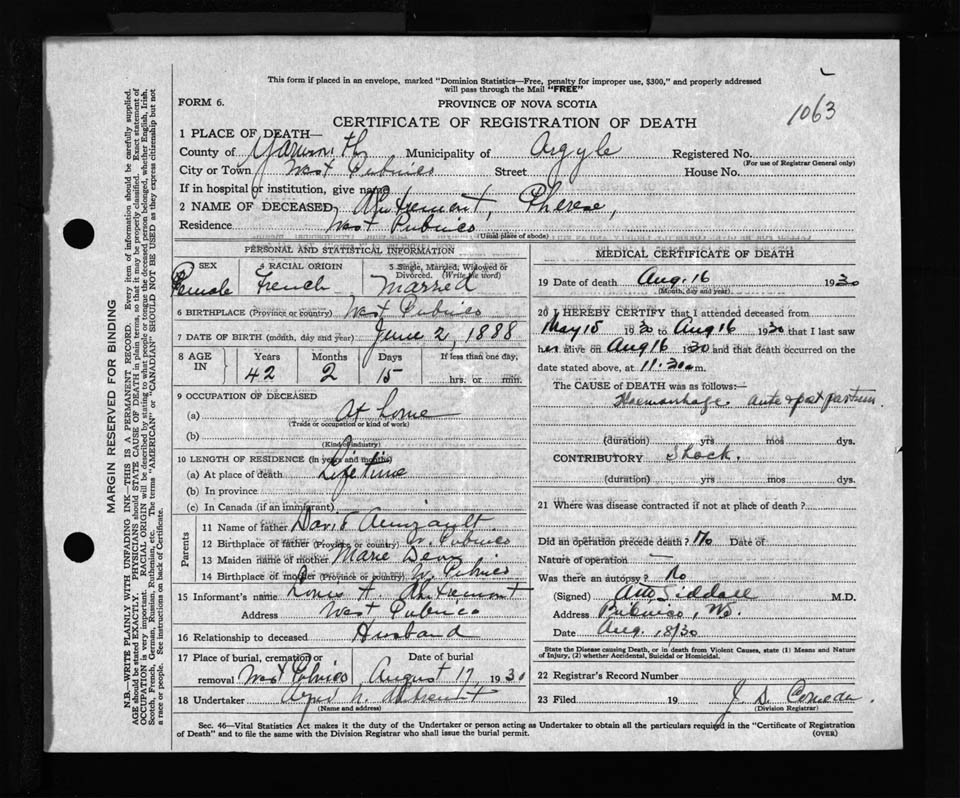 This form if placed in an envelope, marked "Dominion Statistics—Free, penalty for improper use, $300," and properly addressed
will pass through the Mail "FREE"
FORM 6.
PROVINCE OF NOVA SCOTIA
1063
CERTIFICATE OF REGISTRATION OF DEATH
1 PLACE OF DEATH—
County of Yarmouth Municipality of Argyle Registered No.
(For use of Registrar General only)
City or Town West Pubnico Street House No.
If in hospital or institution, give name
2 NAME OF DECEASED d'Entremont, Therese,
Residence West Pubnico
(Usual place of abode)
PERSONAL AND STATISTICAL INFORMATION
3 SEX Female
4 RACIAL ORIGIN French
5 Single, Married, Widowed or Divorced. (Write the word) Married
6 BIRTHPLACE (Province or country) West Pubnico
7 DATE OF BIRTH (month, day and year) June 2, 1888
8 AGE IN Years 42 Months 2 Days 15 If less than one day, hrs. or min.
9 OCCUPATION OF DECEASED
(a) At home
(Trade or occupation or kind of work)
(b)
(Kind of industry)
10 LENGTH OF RESIDENCE (in years and months)
(a) At place of death Lifetime
(b) In province
(c) In Canada (if an immigrant)
Parents
11 Name of father David Amirault
12 Birthplace of father (Province or country) W. Pubnico
13 Maiden name of mother Marie
14 Birthplace of mother (Province or country) W. Pubnico
15 Informant's name Louis A. d'Entremont
Address West Pubnico
16 Relationship to deceased Husband
17 Place of burial, cremation or removal West Pubnico Date of burial August 17 1930
18 Undertaker N. d'Entremont
(Name and address)
MEDICAL CERTIFICATE OF DEATH
19 Date of death Aug. 16 1930
(Month, day and year)
20 I HEREBY CERTIFY that I attended deceased from
May 15 1930 to Aug 16 1930 that I last saw
her alive on Aug 16 1930 and that death occurred on the
date stated above, at 11.30 a m.
The CAUSE OF DEATH was as follows:—
Haemorrhage ante & post partum
(duration) yrs mos dys.
CONTRIBUTORY Shock.
(duration) yrs mos dys.
21 Where was disease contracted if not at place of death?
Did an operation precede death? No Date of
Nature of operation —
Was there an autopsy? No
(Signed) Siddall M.D.
Address Pubnico, NS.
Date Aug. 18/30
State the Disease causing Death, or in death from Violent Causes, state (1) Means and Nature
of Injury, (2) whether Accidental, Suicidal or Homicidal.
22 Registrar's Record Number
23 Filed 19 J. D. Comeau
(Division Registrar)
Sec. 46—Vital Statistics Act makes it the duty of the Undertaker or person acting as Undertaker to obtain all the particulars required in the "Certificate of Registration
of Death" and to file the same with the Division Registrar who shall issue the burial permit.
(OVER)
MARGIN RESERVED FOR BINDING
N.B.—WRITE PLAINLY WITH UNFADING INK—THIS IS A PERMANENT RECORD. Every item of information should be carefully supplied.
AGE should be stated EXACTLY. PHYSICIANS should STATE CAUSE OF DEATH in plain terms, so that it may be properly classified. Exact statement of
OCCUPATION is very important. RACIAL ORIGIN will be described by stating to what people or tongue the deceased person belonged, whether English, Irish,
Scotch, French, German, Russian, Ruthenian, etc. The terms "AMERICAN" or "CANADIAN" SHOULD NOT BE USED as they express citizenship but not
a race or people. See instructions on back of Certificate.